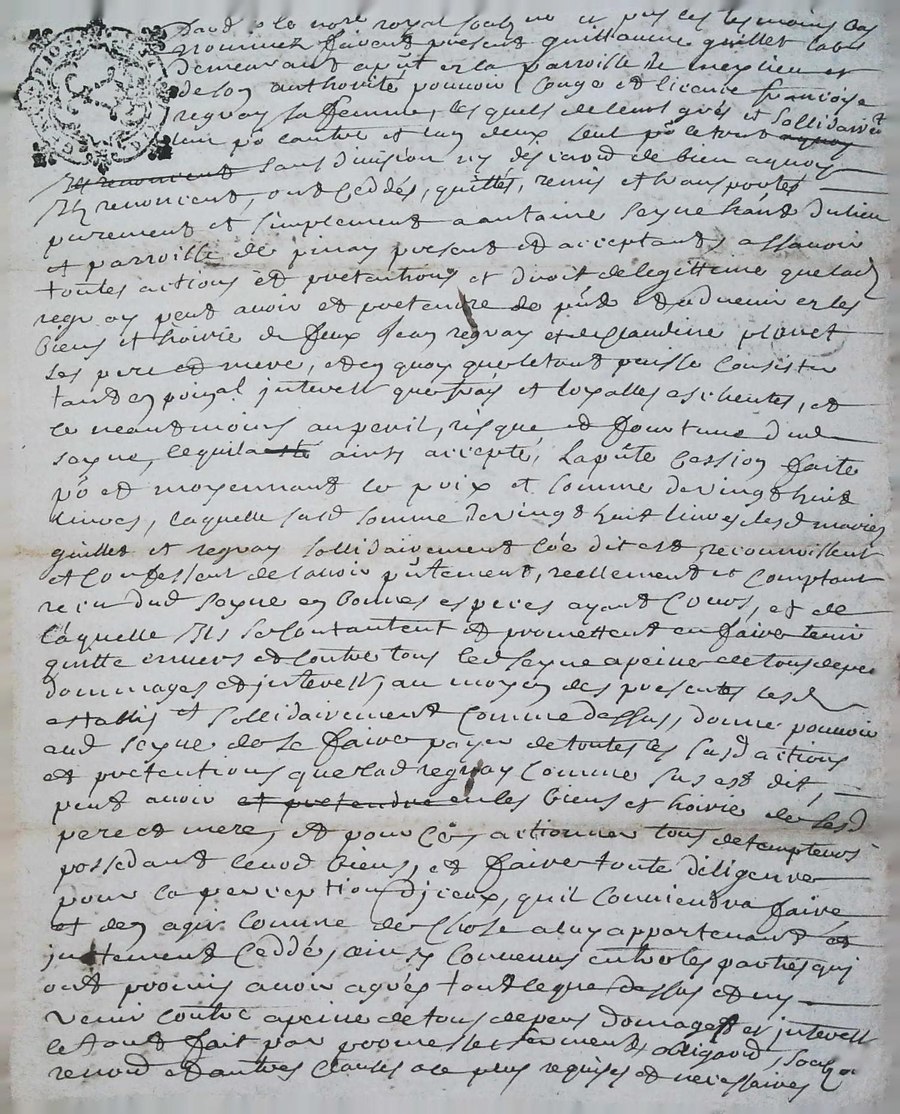 Pard le nore royal soubzne et pnt les tesmoins bas
nommez furent present guillaume guillet labr
demeurant a put et la parroisse de neulieu et
de son authorité pouvoir conge et licence françoise
regnay sa femme, lesquels de leurs grés et sollidairemt
l'un po lautre et lun deux seul po le tout
sans division ny discution de bien a quoy
Ils renoncent, ont ceddés, quittés, remis et transportés
purement et simplement a antoine seyne habt du lieu
et parroisse de pinay present et acceptant assavoir
toutes actions et pretentions et droit de legittime que lad
regnay peut avoir et pretendre de pnt et advenir et les
biens et hoirie de feux Jean regnay et de claudine planet
ses pere et mere, et en quoy que le tout puisse consister
tant en poinpal interest que frais et loyalles escheutes, et
ce neantmoins au peril, risque et fourtune dud
seyne, lequil a ainsy accepté, La pnte cession faite
po et moyennant le prix et somme de vingt huit
livres, laquelle susd somme de vingt huit livres lesd mariez
guillet et regnay sollidairement cõe dit est reconnoissent
et confessent de lavoir pntement, reellement et comptant
receu dud seyne en bonnes especes ayant cours, et de
laquelle Ils se contantent et promettent en faire tenir
quitte envers et contre tous led seyne a peine de tous depens
dommages et interest, au moyen des presentes lesd
establis et sollidairement comme dessus, donne pouvoir
aud seyne de se faire payer de toutes les susd actions
et pretentions que lad regnay comme sus est dit,
peut avoir et pretendre en les biens et hoirie de sesd
pere et mere, et pour ce, actionner tous detempteurs
possedant lesd biens, et faire toute diligence
pour la perception diceux, quil conviendra faire
et den agir comme de chose a luy appartenant et
justement ceddé, ainsy convenus entre les parties qui
ont promis avoir agreé tout le que dessus et ny
venir contre a peine de tous depens domages et interest
le tout fait par promesse serment obligaon soubz
renond et autres clauses a ce plus requises et necessaires